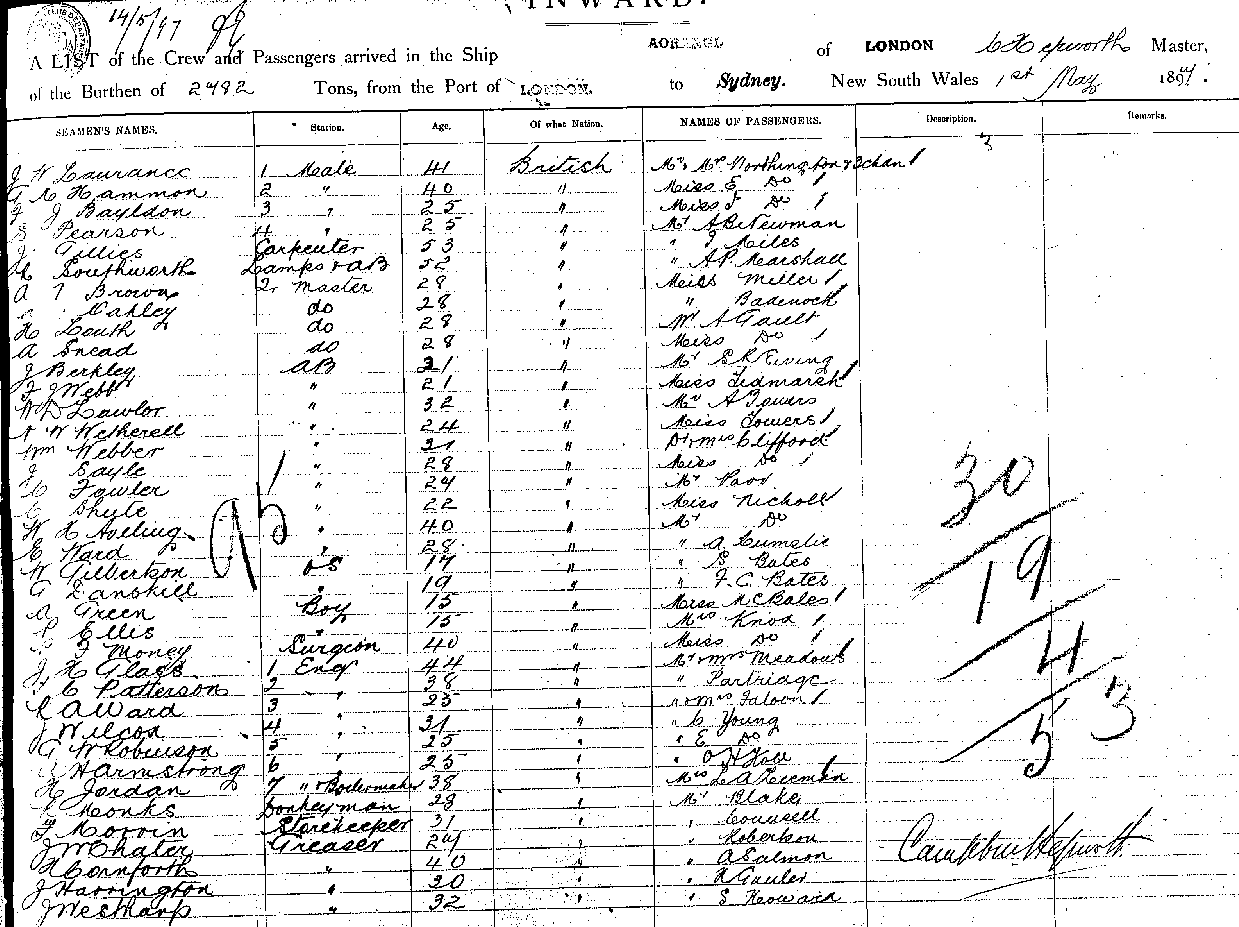 INWARD.
14/5/97
A LIST of the Crew and Passengers arrived in the Ship AORANGI of LONDON C Hepworth Master,
of the Burthen of 2782 Tons, from the Port of LONDON. to Sydney. New South Wales 1st May 1897.
SEAMEN'S NAMES. Station. Age. Of what Nation. NAMES OF PASSENGERS. Description. Remarks.
3
J W Laurance 1 Mate 41 British Mr & Mrs Worthington & 2 chan
Hammon 2 " 40 " Miss E Do
J Bayldon 3 " 25 " Miss Do
S Pearson 4 " 25 " Mr Newman
J Gillies Carpenter 53 " " J Miles
Southworth Lamps & AB 52 " " A P Marshall
A T Brown 2r Master 28 " Miss Miller
Oakley do 28 " " Badenoch
H Louth do 28 " Mr A Gault
A Snead do 28 " Miss Do
J Berkley AB 21 " Mr Ewing
F J Webb " 21 " Miss Tidmarsh
W D Lawlor " 32 " Mr A Towers
W Wetherell " 24 " Miss Towers
Wm Webber " 21 " Dr & Mrs Clifford
J Sayle " 28 " Miss Do
Fowler " 24 " Mr Paor
C Shute " 22 " Miss Nicholl
W H Aveling " 40 " Mr Do
E Ward " 28 " " A
W Gilbertson OS 17 " " S Bates
G Lanskill " 19 " " F. C. Bates
A Green Boy 15 " Miss McBales
Ellis " 15 " Mrs Knox
Money Surgeon 40 " Miss Do
J H Glass 1 Engr 44 " Mr & Mrs Meadows
C Patterson 2 " 38 " " Partridge
A Ward 3 " 25 " " & Mrs Faloon
J Wilcon 4 " 31 " " C Young
G W Robinson 5 " 25 " " E Do
Harmstrong 6 " 25 "
H Jordan 7 " & Boilermaker 38 " Mrs Freeman
Monks Donkeyman 28 " Mr Blake
Morrin Storekeeper 31 " " Counsell
J W Chater Greaser 24 " " Robertson
Cornforth " 40 " " A Salmon
J Harrington " 30 " " Gauler
J Westharp " 32 " " S Howard
95
30
19
4
53